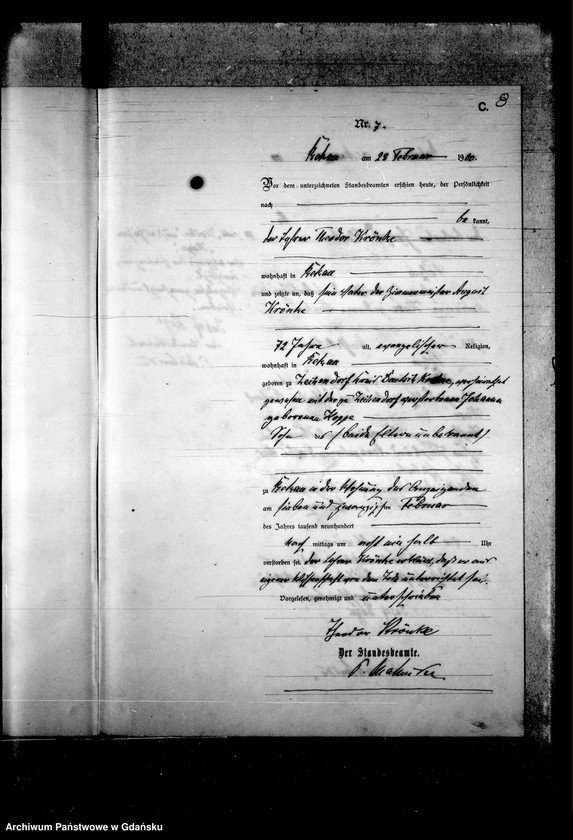 C. 8
Nr. 7.
am 28 Februar 1900.
Vor dem unterzeichneten Standesbeamten erschien heute, der Persönlichkeit
nach
be kannt,
der Lehrer Theodor Krönke
wohnhaft in
und zeigte an, daß sein Vater der Zimmermeister August
Krönke
72 Jahre alt, evangelischer Religion,
wohnhaft in
geboren zu Zeckendorf Kreis
gewesen mit der zu Zeckendorf verstorbenen Johanna
geborenen Hoppe
Sohn des (beide Eltern unbekannt)
zu in der Wohnung des Anzeigenden
am sieben und zwanzigsten Februar
des Jahres tausend neunhundert
Nach mittags um Uhr
verstorben sei. der Lehrer Krönke erklärt, daß er aus
eigener Wissenschaft von dem Tode unterrichtet sei.
Vorgelesen, genehmigt und unterschrieben
Theodor Krönke
Der Standesbeamte.
Archiwum Państwowe w Gdańsku